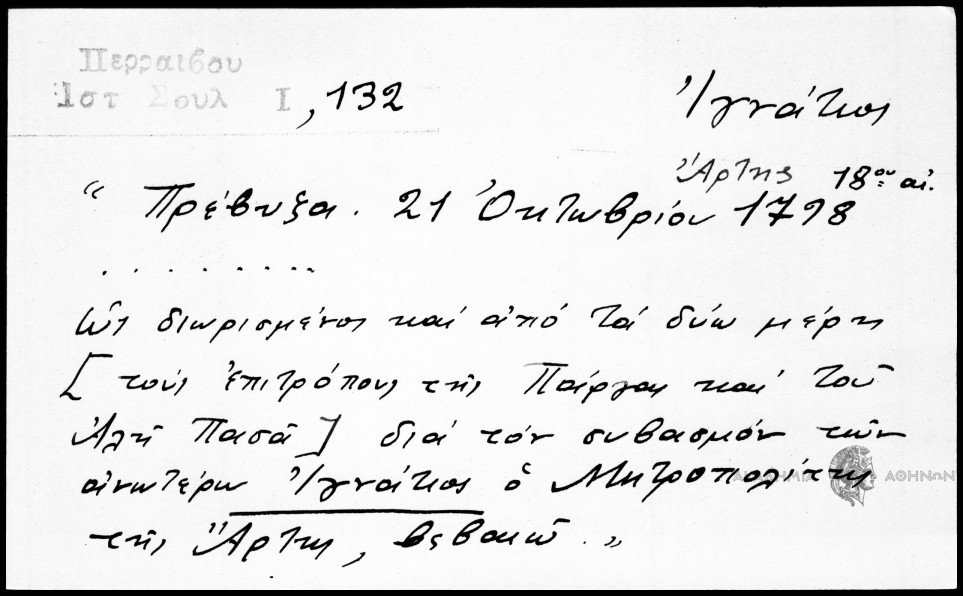 Περραιβου
Ιστ Σουλ Ι, 132
Ἰγνάτιος
Ἄρτης 18ου αἰ.
“ Πρέβυζα. 21 Ὀκτωβρίου 1798
. . . . . . . . .
Ὡς διωρισμένος καί ἀπό τά δύω μέρη
[ τούς ἐπιτρόπους τῆς Πάργας καί τοῦ
Ἀλῆ Πασᾶ ] διά τόν συβασμόν τῶν
ἀνωτέρω Ἰγνάτιος ὁ Μητροπολίτης
τῆς Ἄρτης, βεβαιῶ. „
ΑΚΑΔΗΜΙΑ ΑΘΗΝΩΝ